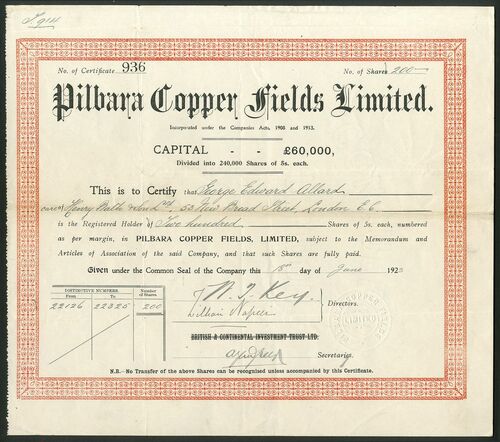 No. of Certificate 936 No. of Shares 200
Pilbara Copper Fields Limited.
Incorporated under the Companies Acts, 1908 and 1913.
CAPITAL - - £60,000,
Divided into 240,000 Shares of 5s. each.
This is to Certify that George Edward Allard
care of Henry Bath & Son Ltd, 53 New Broad Street, London E.C.
is the Registered Holder of Two hundred Shares of 5s. each, numbered
as per margin, in PILBARA COPPER FIELDS, LIMITED, subject to the Memorandum and
Articles of Association of the said Company, and that such Shares are fully paid.
Given under the Common Seal of the Company this 18th day of June 1923
DISTINCTIVE NUMBERS. Number of Shares
From To
22126 22325 200
N. J. Key
William Napier
Directors.
BRITISH & CONTINENTAL INVESTMENT TRUST LTD.
Secretary.
N.B.—No Transfer of the above Shares can be recognised unless accompanied by this Certificate.